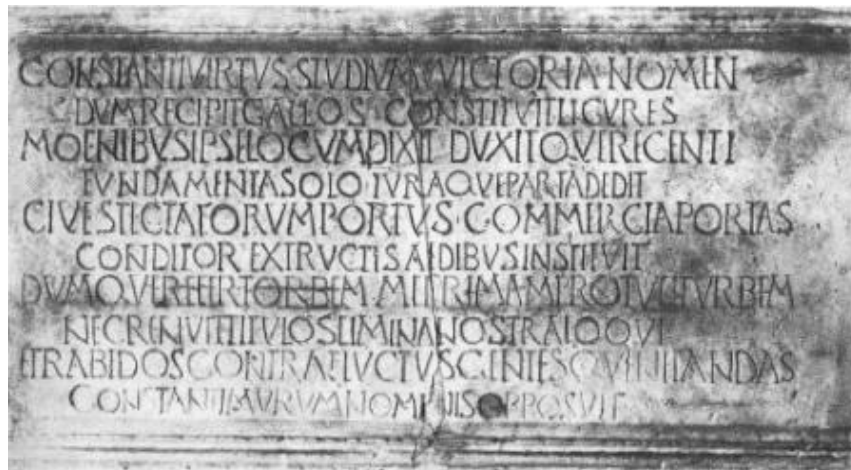 CONSTANTI VIRTVS STVDIVM VICTORIA NOMEN
DVM RECIPIT GALLOS CONSTITVIT LIGVRES
MOENIBVS IPSE LOCVM DIXIT DVXITQVE RECENTI
FVNDAMENTA SOLO IVRAQVE PARTA DEDIT
CIVES TECTA FORVM PORTVS COMMERCIA PORTAS
CONDITOR EXTRVCTIS AEDIBVS INSTITVIT
DVMQVE REFERT ORBEM ME PRIMAM PROTVLIT VRBEM
NEC RENVIT TITVLOS LIMINA NOSTRA LOQVI
ET RABIDOS CONTRA FLVCTVS GENTESQVE NEFANDAS
CONSTANTI MVRVM NOMINIS OPPOSVIT